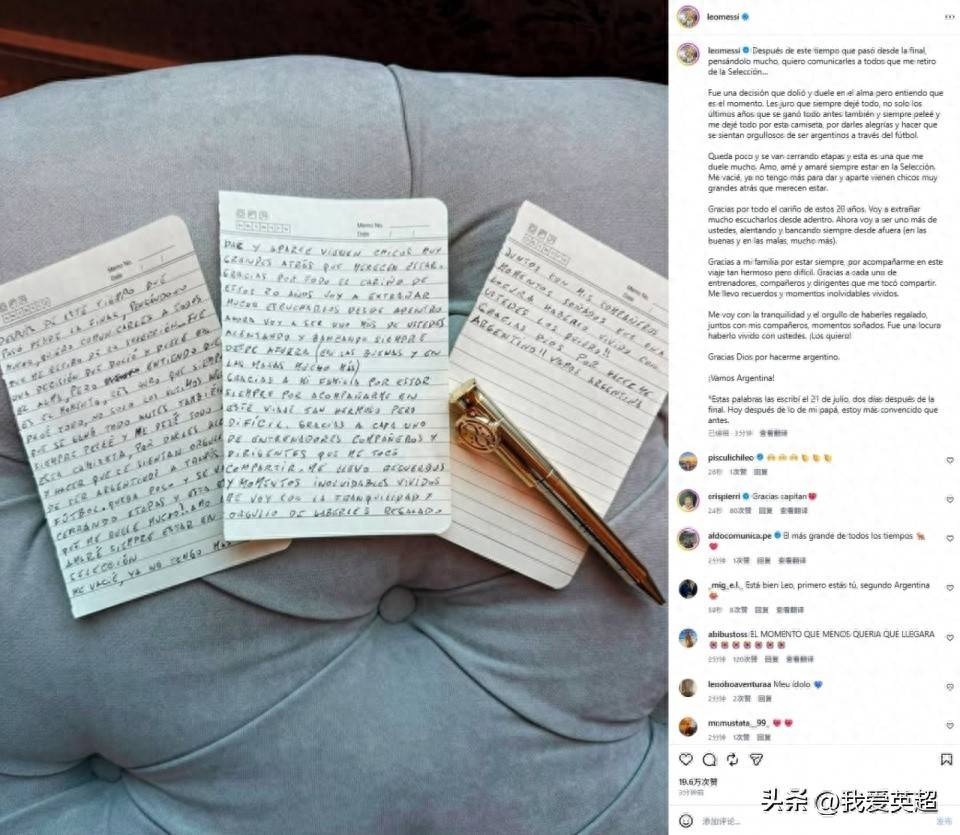 Memo No.
Date
DESPUES DE ESTE TIEMPO QUE
PASO DESDE LA FINAL, PENSANDOLO
MUCHO, QUIERO COMUNICARLES A TODOS
QUE ME RETIRO DE LA SELECCION. FUE
UNA DECISION QUE DOLIO Y DUELE EN
EL ALMA, PERO ENTIENDO QUE
ES EL MOMENTO. LES JURO QUE SIEMPRE
DEJE TODO, NO SOLO LOS ULTIMOS
QUE SE GANO TODO ANTES TAMBIEN
SIEMPRE PELEE Y ME DEJE TODO
ESTA CAMISETA, POR DARLES
Y HACER QUE SE SIENTAN
DE SER ARGENTINOS A
FUTBOL. QUEDA POCO Y SE
CERRANDO ETAPAS Y ESTA
QUE ME DUELE MUCHO. AMO
AMARE SIEMPRE ESTAR EN
SELECCION
ME VACIE, YA NO TENGO MAS
Memo No.
Date
DAR Y APARTE VIENEN CHICOS MUY
GRANDES ATRAS QUE MERECEN ESTAR.
GRACIAS POR TODO EL CARIÑO DE
ESTOS 20 AÑOS VOY A EXTRAÑAR
MUCHO ESCUCHARLOS DESDE ADENTRO
AHORA VOY A SER UNO MAS DE USTEDES
ALENTANDO Y BANCANDO SIEMPRE
DESDE AFUERA (EN LAS BUENAS Y EN
LAS MALAS MUCHO MAS)
GRACIAS A MI FAMILIA POR ESTAR
SIEMPRE POR ACOMPAÑARME EN
ESTE VIAJE TAN HERMOSO PERO
DIFICIL. GRACIAS A CADA UNO
DE ENTRENADORES COMPAÑEROS Y
DIRIGENTES QUE ME TOCO
COMPARTIR. ME LLEVO RECUERDOS
Y MOMENTOS INOLVIDABLES VIVIDOS
ME VOY CON LA TRANQUILIDAD Y
ORGULLO DE HABERLES REGALADO
Memo No.
Date
JUNTOS CON MIS COMPAÑEROS
MOMENTOS SOÑADOS FUE UNA
LOCURA HABERLO VIVIDO CON
USTEDES LOS QUIERO!!
GRACIAS DIOS POR HACERME
ARGENTINO!! VAMOS ARGENTINA
leomessi
leomessi Después de este tiempo que pasó desde la final,
pensándolo mucho, quiero comunicarles a todos que me retiro
de la Selección...
Fue una decisión que dolió y duele en el alma pero entiendo que
es el momento. Les juro que siempre dejé todo, no solo los
últimos años que se ganó todo antes también y siempre peleé y
me dejé todo por esta camiseta, por darles alegrías y hacer que
se sientan orgullosos de ser argentinos a través del fútbol.
Queda poco y se van cerrando etapas y esta es una que me
duele mucho. Amo, amé y amaré siempre estar en la Selección.
Me vacié, ya no tengo más para dar y aparte vienen chicos muy
grandes atrás que merecen estar.
Gracias por todo el cariño de estos 20 años. Voy a extrañar
mucho escucharlos desde adentro. Ahora voy a ser uno más de
ustedes, alentando y bancando siempre desde afuera (en las
buenas y en las malas, mucho más).
Gracias a mi familia por estar siempre, por acompañarme en este
viaje tan hermoso pero difícil. Gracias a cada uno de
entrenadores, compañeros y dirigentes que me tocó compartir.
Me llevo recuerdos y momentos inolvidables vividos.
Me voy con la tranquilidad y el orgullo de haberles regalado,
juntos con mis compañeros, momentos soñados. Fue una locura
haberlo vivido con ustedes. ¡Los quiero!
Gracias Dios por hacerme argentino.
¡Vamos Argentina!
*Estas palabras las escribí el 21 de julio, dos días después de la
final. Hoy después de lo de mi papá, estoy más convencido que
antes.
已编辑 · 3分钟 查看翻译
pisculichileo
28秒 1次赞 回复
crispierri Gracias capitan❤️
24秒 80次赞 回复 查看翻译
aldocomunica.pe El más grande de todos los tiempos 🐐
❤️
2分钟 1次赞 回复 查看翻译
_mig_e.l._ Está bien Leo, primero estás tú, segundo Argentina
58秒 8次赞 回复 查看翻译
abibustoss EL MOMENTO QUE MENOS QUERIA QUE LLEGARA
2分钟 120次赞 回复 查看翻译
leooboaventuraa Meu ídolo 💙
2分钟 2次赞 回复
mrmustata__99_ ❤️❤️
2分钟 1次赞 回复
19.6万次赞
3分钟前
添加评论...
发布
头条 @我爱英超